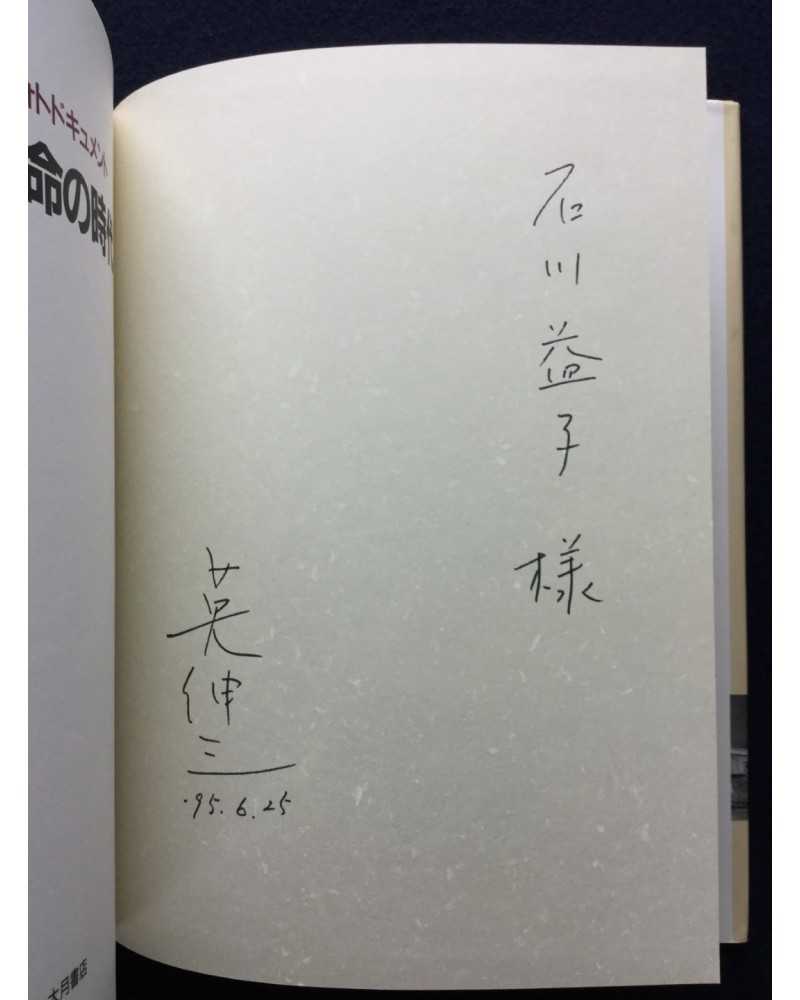 ォトドキュメント
命の時代
大月書店
石川益子様
英伸三
'95.6.25